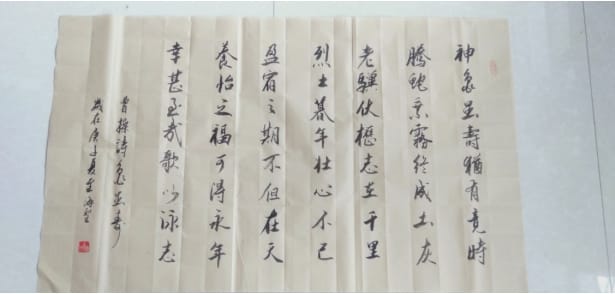 神龜虽壽猶有竟時
騰蛇乘霧終成土灰
老驥伏櫪志在千里
烈士暮年壮心不已
盈宿之期不但在天
養怡之福可得永年
幸甚至哉歌以詠志
曹操詩龜虽壽
歲在庚子夏